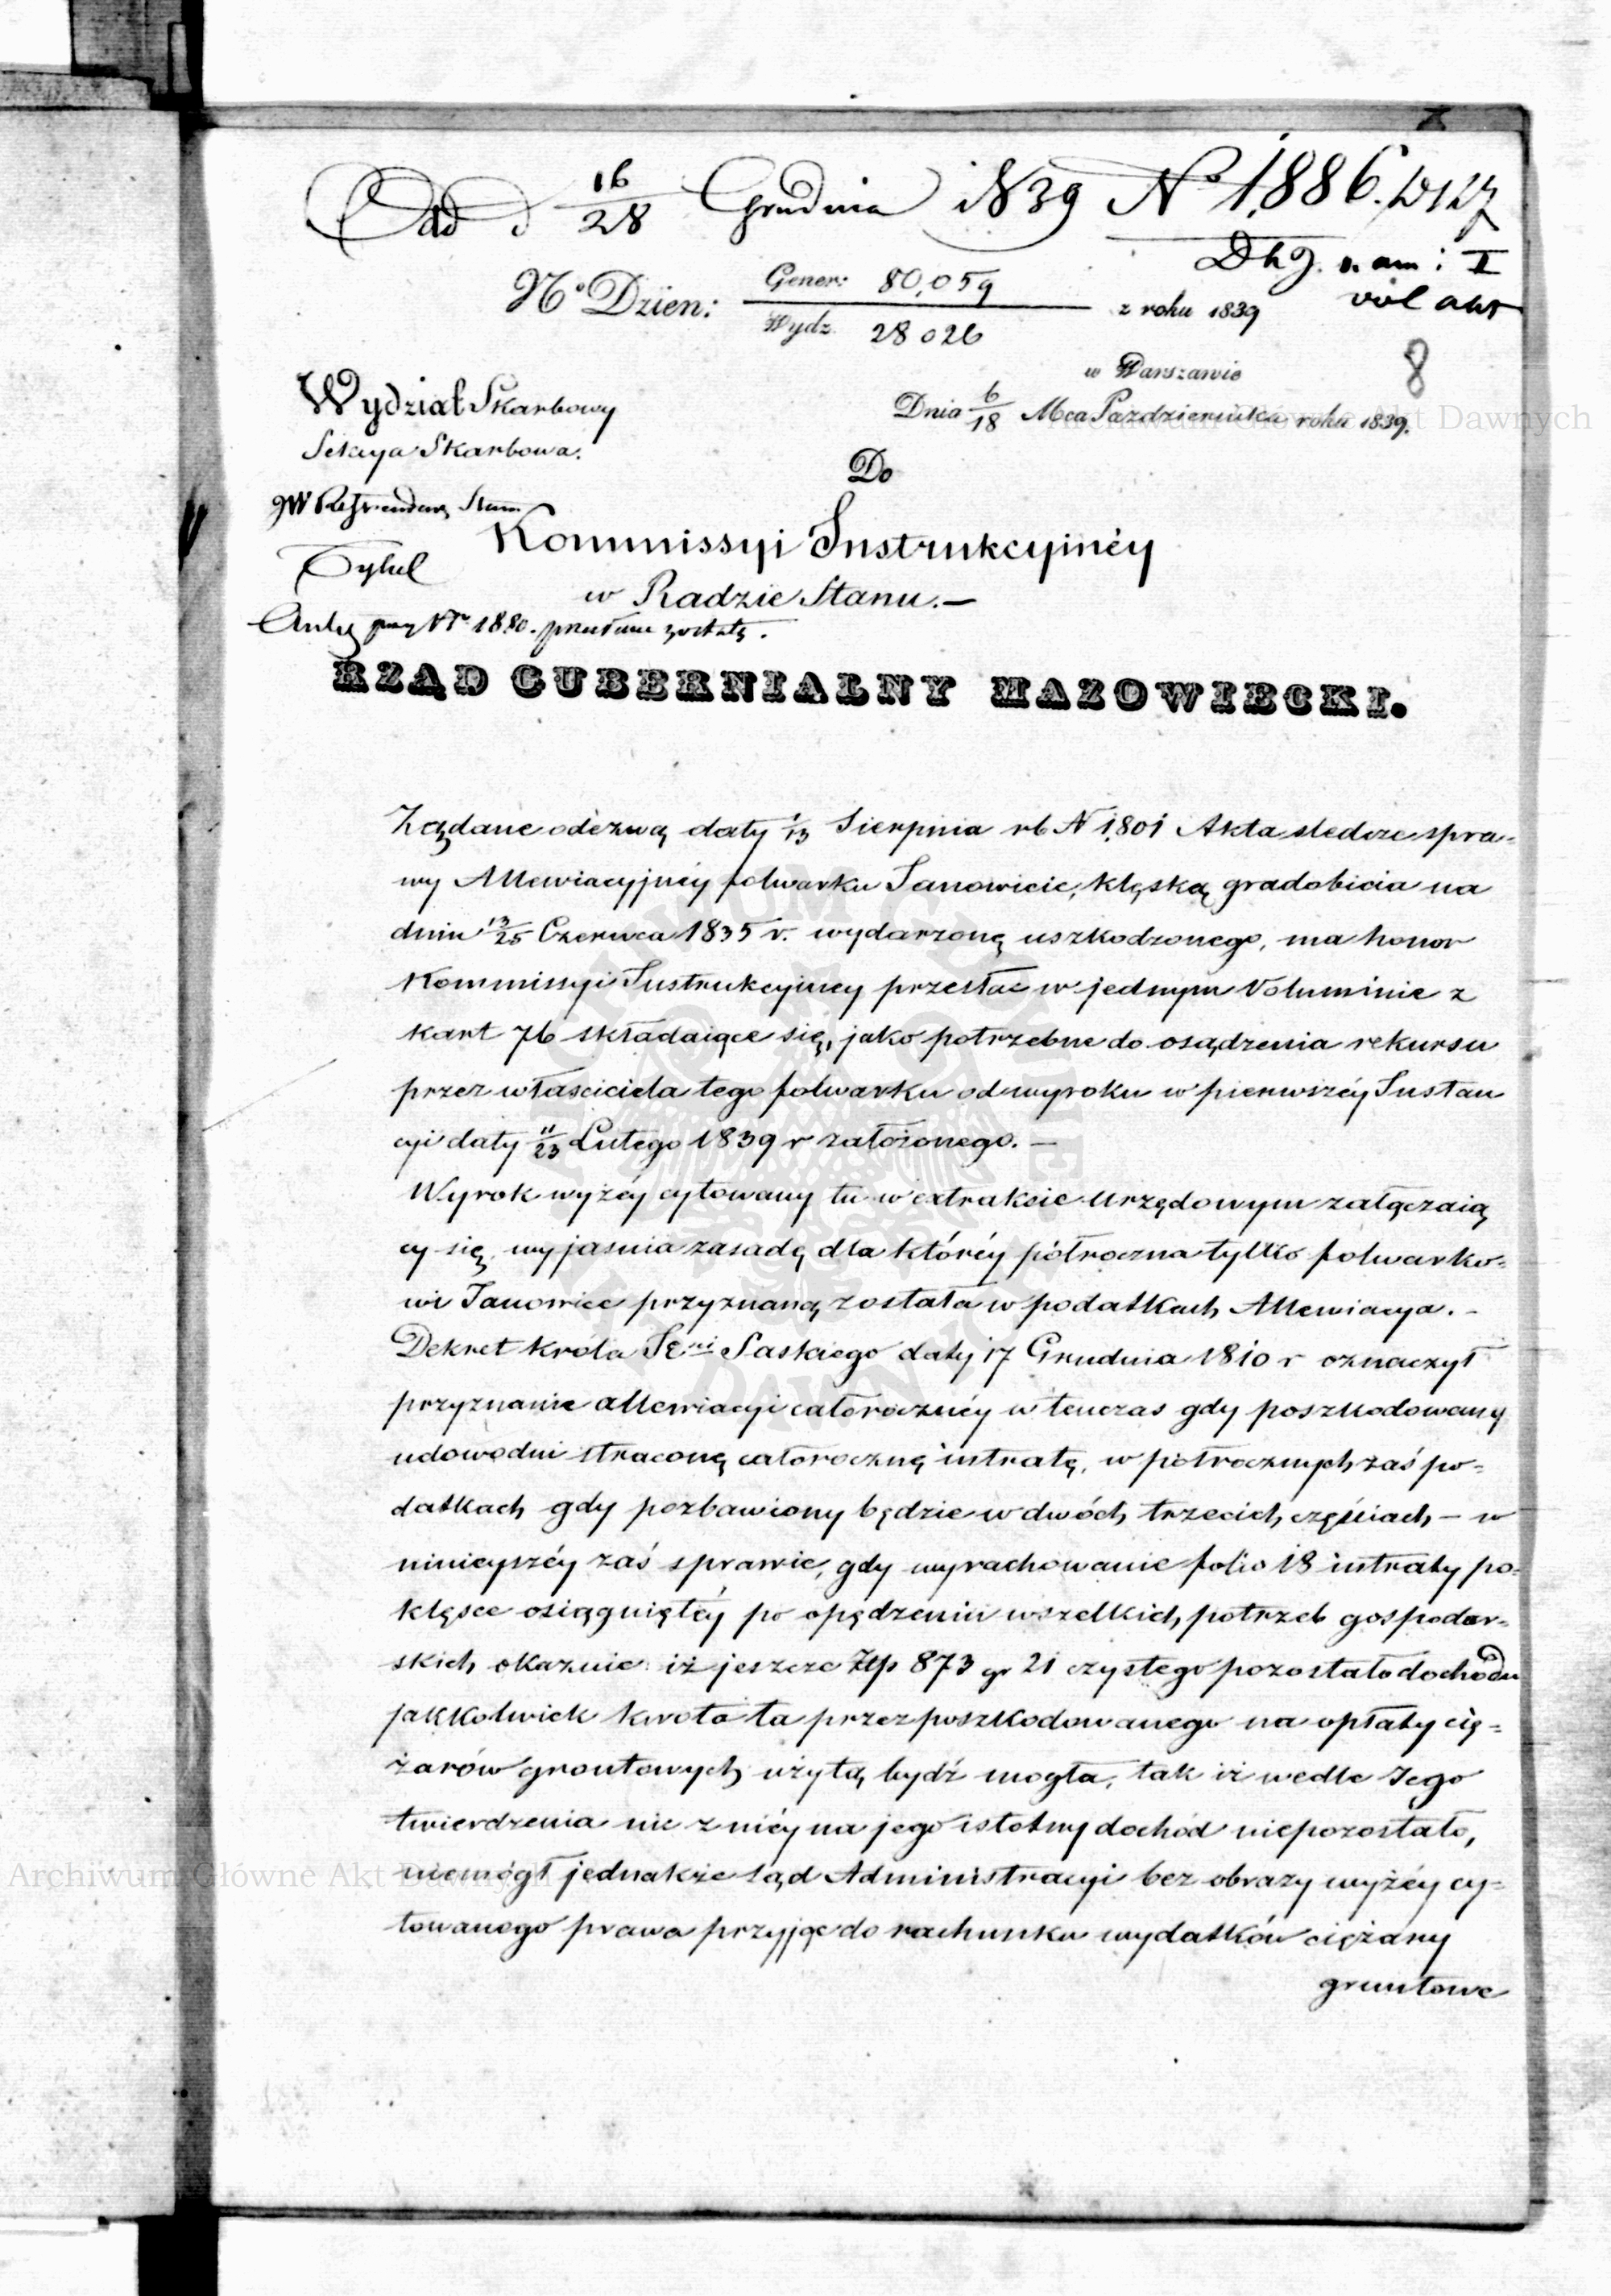 Odd d 16/28 Grudnia 1839 No 1,886.
Dhg. n. am: I
vol akt
No Dzien: Gener: 80,059 z roku 1839
Wydz. 28026
8
w Warszawie
Dnia 6/18 Mca Pazdziernika roku 1839.
Wydział Skarbowy
Sekcya Skarbowa.
Do
JW Referendarz Stanu
Kommissyi Instrukcyinéy
Tykel
w Radzie Stanu.—
przy Nr 1880.
RZĄD GUBERNIALNY MAZOWIECKI.
Zażdane odezwą daty 1/13 Sierpnia rb N 1,801 Akta sledcze spra-
wy Allewiacyjnéy folwarku Janowicie, klęską gradobicia na
dniu 13/25 Czerwca 1835 r. wydarzoną uszkodzonego, ma honor
Kommissyi Instrukcyiney przesłać w jednym Voluminie z
kart 76 składaiące się, jako potrzebne do osądzenia rekursu
przez właściciela tego folwarku od wyroku w pierwszéy Instan
cyi daty 11/23 Lutego 1839 r założonego. —
Wyrok wyżéy cytowany tu w extrakcie urzędowym załączaią
cy się, wyjasnia zasadę dla któréy półroczna tylko folwarko-
wi Janowice przyznaną została w podatkach Allewiacya. -
Dekret Króla Saskiego daty 17 Grudnia 1810 r oznaczył
przyznanie allewiacyi całorocznéy w tenczas gdy poszkodowany
udowodni straconą całoroczną intratę, w półrocznych zaś po-
datkach gdy pozbawiony będzie w dwóch trzecich częściach – w
ninieyszéy zaś sprawie, gdy wyrachowanie folio 18 intraty po-
klęsce osiągniętéy po opędzeniu wszelkich potrzeb gospodar-
skich okazuie iż jeszcze Złp 873 gr 21 czystego pozostało dochodu
jakkolwiek kwota ta przez poszkodowanego na opłaty cię-
żarów gruntowych użytą bydź mogła, tak iż wedle Jego
twierdzenia nic z niéy na jego istotny dochód niepozostało,
niemógł jednakże sąd Administracyi bez obrazy wyżéy cy-
towanego prawa przyjąć do rachunku wydatków ciężary
gruntowe
Archiwum Główne Akt Dawnych